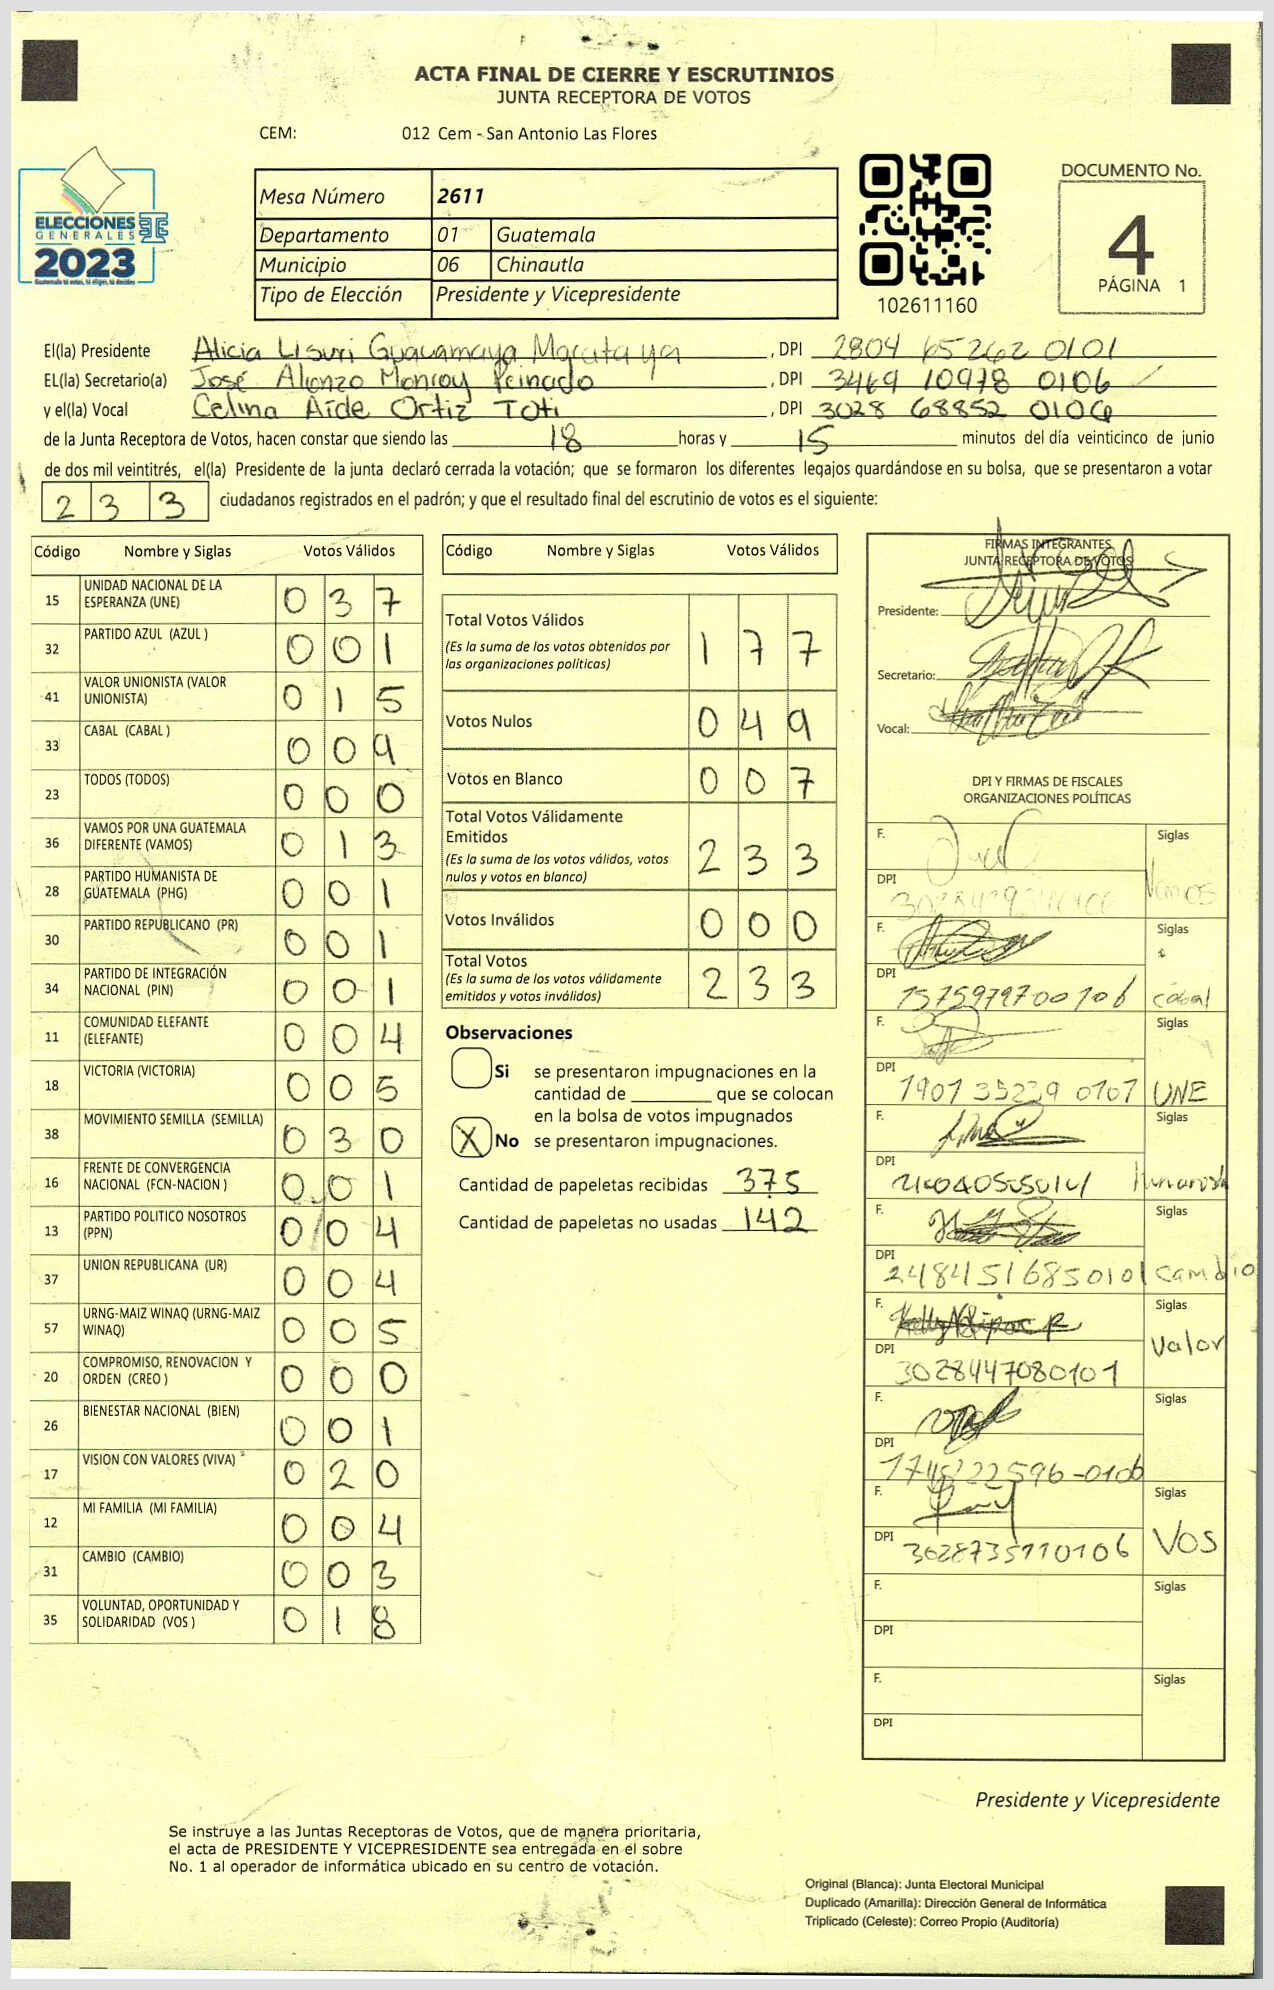 ACTA FINAL DE CIERRE Y ESCRUTINIOS
JUNTA RECEPTORA DE VOTOS
CEM: 012 Cem - San Antonio Las Flores
ELECCIONES
GENERALES
2023
Guatemala tú votas, tú eliges, tú decides
Mesa Número 2611
Departamento 01 Guatemala
Municipio 06 Chinautla
Tipo de Elección Presidente y Vicepresidente
102611160
DOCUMENTO No.
4
PÁGINA 1
El(la) Presidente Alicia Guacamaya , DPI 2804 65262 0101
EL(la) Secretario(a) José Alonzo Monroy Peinado , DPI 3469 10978 0106
y el(la) Vocal Celina Aide Ortiz , DPI 3028 68852 0106
de la Junta Receptora de Votos, hacen constar que siendo las 18 horas y 15 minutos del día veinticinco de junio
de dos mil veintitrés, el(la) Presidente de la junta declaró cerrada la votación; que se formaron los diferentes legajos guardándose en su bolsa, que se presentaron a votar
2 3 3 ciudadanos registrados en el padrón; y que el resultado final del escrutinio de votos es el siguiente:
Código Nombre y Siglas Votos Válidos
15 UNIDAD NACIONAL DE LA ESPERANZA (UNE) 0 3 7
32 PARTIDO AZUL (AZUL ) 0 0 1
41 VALOR UNIONISTA (VALOR UNIONISTA) 0 1 5
33 CABAL (CABAL ) 0 0 9
23 TODOS (TODOS) 0 0 0
36 VAMOS POR UNA GUATEMALA DIFERENTE (VAMOS) 0 1 3
28 PARTIDO HUMANISTA DE GUATEMALA (PHG) 0 0 1
30 PARTIDO REPUBLICANO (PR) 0 0 1
34 PARTIDO DE INTEGRACIÓN NACIONAL (PIN) 0 0 1
11 COMUNIDAD ELEFANTE (ELEFANTE) 0 0 4
18 VICTORIA (VICTORIA) 0 0 5
38 MOVIMIENTO SEMILLA (SEMILLA) 0 3 0
16 FRENTE DE CONVERGENCIA NACIONAL (FCN-NACION ) 0 0 1
13 PARTIDO POLITICO NOSOTROS (PPN) 0 0 4
37 UNION REPUBLICANA (UR) 0 0 4
57 URNG-MAIZ WINAQ (URNG-MAIZ WINAQ) 0 0 5
20 COMPROMISO, RENOVACION Y ORDEN (CREO ) 0 0 0
26 BIENESTAR NACIONAL (BIEN) 0 0 1
17 VISION CON VALORES (VIVA) 0 2 0
12 MI FAMILIA (MI FAMILIA) 0 0 4
31 CAMBIO (CAMBIO) 0 0 3
35 VOLUNTAD, OPORTUNIDAD Y SOLIDARIDAD (VOS ) 0 1 8
Código Nombre y Siglas Votos Válidos
Total Votos Válidos 1 7 7
(Es la suma de los votos obtenidos por
las organizaciones políticas)
Votos Nulos 0 4 9
Votos en Blanco 0 0 7
Total Votos Válidamente
Emitidos 2 3 3
(Es la suma de los votos válidos, votos
nulos y votos en blanco)
Votos Inválidos 0 0 0
Total Votos 2 3 3
(Es la suma de los votos válidamente
emitidos y votos inválidos)
Observaciones
Si se presentaron impugnaciones en la
cantidad de ________ que se colocan
en la bolsa de votos impugnados
X No se presentaron impugnaciones.
Cantidad de papeletas recibidas 375
Cantidad de papeletas no usadas 142
FIRMAS INTEGRANTES
JUNTA RECEPTORA DE VOTOS
Presidente:
Secretario:
Vocal:
DPI Y FIRMAS DE FISCALES
ORGANIZACIONES POLÍTICAS
F. Siglas
DPI Vamos
F. Siglas
DPI 1575979700106 cabal
F. Siglas
DPI 1901 35239 0101 UNE
F. Siglas
DPI
F. Siglas
DPI 2484516850101 cambio
F. Siglas
DPI 3028447080101 Valor
F. Siglas
DPI
F. Siglas
DPI 3028735110106 VOS
F. Siglas
DPI
F. Siglas
DPI
Presidente y Vicepresidente
Se instruye a las Juntas Receptoras de Votos, que de manera prioritaria,
el acta de PRESIDENTE Y VICEPRESIDENTE sea entregada en el sobre
No. 1 al operador de informática ubicado en su centro de votación.
Original (Blanca): Junta Electoral Municipal
Duplicado (Amarilla): Dirección General de Informática
Triplicado (Celeste): Correo Propio (Auditoría)